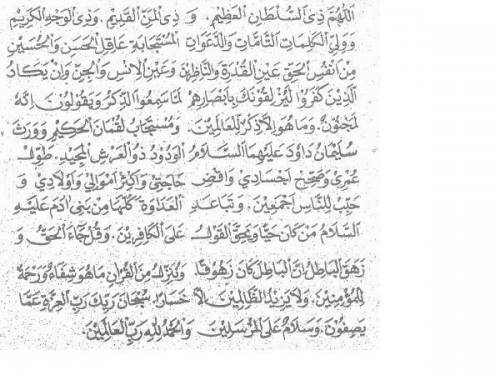 اَللّٰهُمَّ ذِى السُّلْطَانِ الْعَظِيْمِ. وَ ذِى الْمَنِّ الْقَدِيْمِ. وَذِى الْوَجْهِ الْكَرِيْمِ
وَوَلِيِّ الْكَلِمَاتِ التَّامَّاتِ وَالدَّعَوَاتِ الْمُسْتَجَابَةِ عَاقِلِ الْحَسَنِ وَالْحُسَيْنِ
مِنْ اَنْفُسِ الْحَقِّ عَيْنِ الْقُدْرَةِ وَالنَّاظِرِيْنَ وَعَيْنِ الْاِنْسِ وَالْجِنِّ وَاِنْ يَكَادُ
الَّذِيْنَ كَفَرُوْا لَيُزْلِقُوْنَكَ بِاَبْصَارِهِمْ لَمَّا سَمِعُوا الذِّكْرَ وَيَقُوْلُوْنَ اِنَّهُ
لَمَجْنُوْنٌ. وَمَا هُوَ اِلَّا ذِكْرٌ لِلْعَالَمِيْنَ. وَمُسْتَجَابُ لُقْمَانَ الْحَكِيْمِ وَوَرِثَ
سُلَيْمَانُ دَاوُدَ عَلَيْهِمَا السَّلَامُ الْوَدُوْدُ ذُو الْعَرْشِ الْمَجِيْدِ. طَوِّلْ
عُمْرِيْ وَصَحِّحْ اَجْسَادِيْ وَاقْضِ حَاجَتِيْ وَاَكْثِرْ اَمْوَالِيْ وَاَوْلَادِيْ وَ
حَبِّبْ لِلنَّاسِ اَجْمَعِيْنَ. وَتَبَاعَدِ الْعَدَاوَةَ كُلَّهَا مِنْ بَنِيْ اٰدَمَ عَلَيْهِ
السَّلَامُ مَنْ كَانَ حَيًّا وَيَحِقَّ الْقَوْلُ عَلَى الْكَافِرِيْنَ. وَقُلْ جَاءَ الْحَقُّ وَ
زَهَقَ الْبَاطِلُ اِنَّ الْبَاطِلَ كَانَ زَهُوْقًا. وَنُنَزِّلُ مِنَ الْقُرْاٰنِ مَا هُوَ شِفَاءٌ وَرَحْمَةٌ
لِلْمُؤْمِنِيْنَ. وَلَا يَزِيْدُ الظَّالِمِيْنَ اِلَّا خَسَارًا. سُبْحَانَ رَبِّكَ رَبِّ الْعِزَّةِ عَمَّا
يَصِفُوْنَ. وَسَلَامٌ عَلَى الْمُرْسَلِيْنَ وَالْحَمْدُ لِلّٰهِ رَبِّ الْعَالَمِيْنَ.